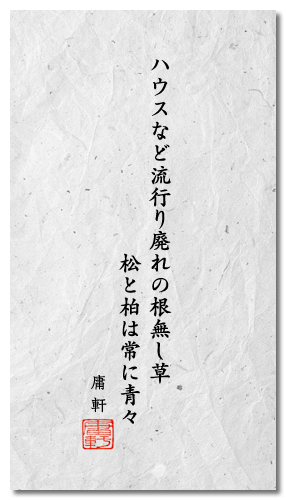 ハウスなど流行り廃れの根無し草
松と柏は常に青々
庸軒